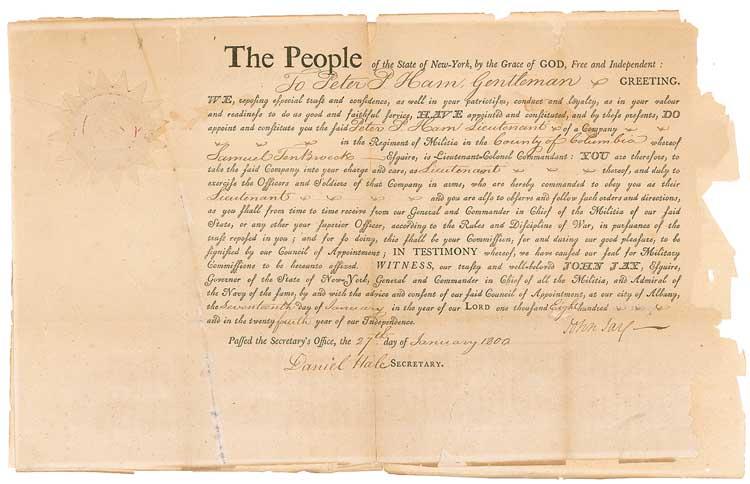 The People of the State of New-York, by the Grace of GOD, Free and Independent:
To Peter P Ham, Gentleman GREETING.
WE, reposing eſpecial truſt and confidence, as well in your patriotiſm, conduct and loyalty, as in your valour
and readineſs to do us good and faithful ſervice, HAVE appointed and conſtituted, and by theſe preſents, DO
appoint and conſtitute you the ſaid Peter P. Ham Lieutenant of a Company
in the Regiment of Militia in the County of Columbia whereof
Samuel TenBroeck Eſquire, is Lieutenant-Colonel Commandant: YOU are therefore, to
take the ſaid Company into your charge and care, as Lieutenant thereof, and duly to
exerciſe the Officers and Soldiers of that Company in arms, who are hereby commanded to obey you as their
Lieutenant and you are alſo to obſerve and follow ſuch orders and directions,
as you ſhall from time to time receive from our General and Commander in Chief of the Militia of our ſaid
State, or any other your Superior Officer, according to the Rules and Diſcipline of War, in purſuance of the
truſt repoſed in you; and for ſo doing, this ſhall be your Commiſſion, for and during our good pleaſure, to be
ſignified by our Council of Appointment; IN TESTIMONY whereof, we have cauſed our ſeal for Military
Commiſſions to be hereunto affixed. WITNESS, our truſty and well-beloved JOHN JAY, Eſquire,
Governor of the State of New-York, General and Commander in Chief of all the Militia, and Admiral of
the Navy of the ſame, by and with the advice and conſent of our ſaid Council of Appointment, at our city of Albany,
the Seventeenth day of January in the year of our LORD one thouſand Eight hundred
and in the twenty fourth year of our Independence.
John Jay
Paſſed the Secretary's Office, the 27th day of January 1800
Daniel Hale SECRETARY.